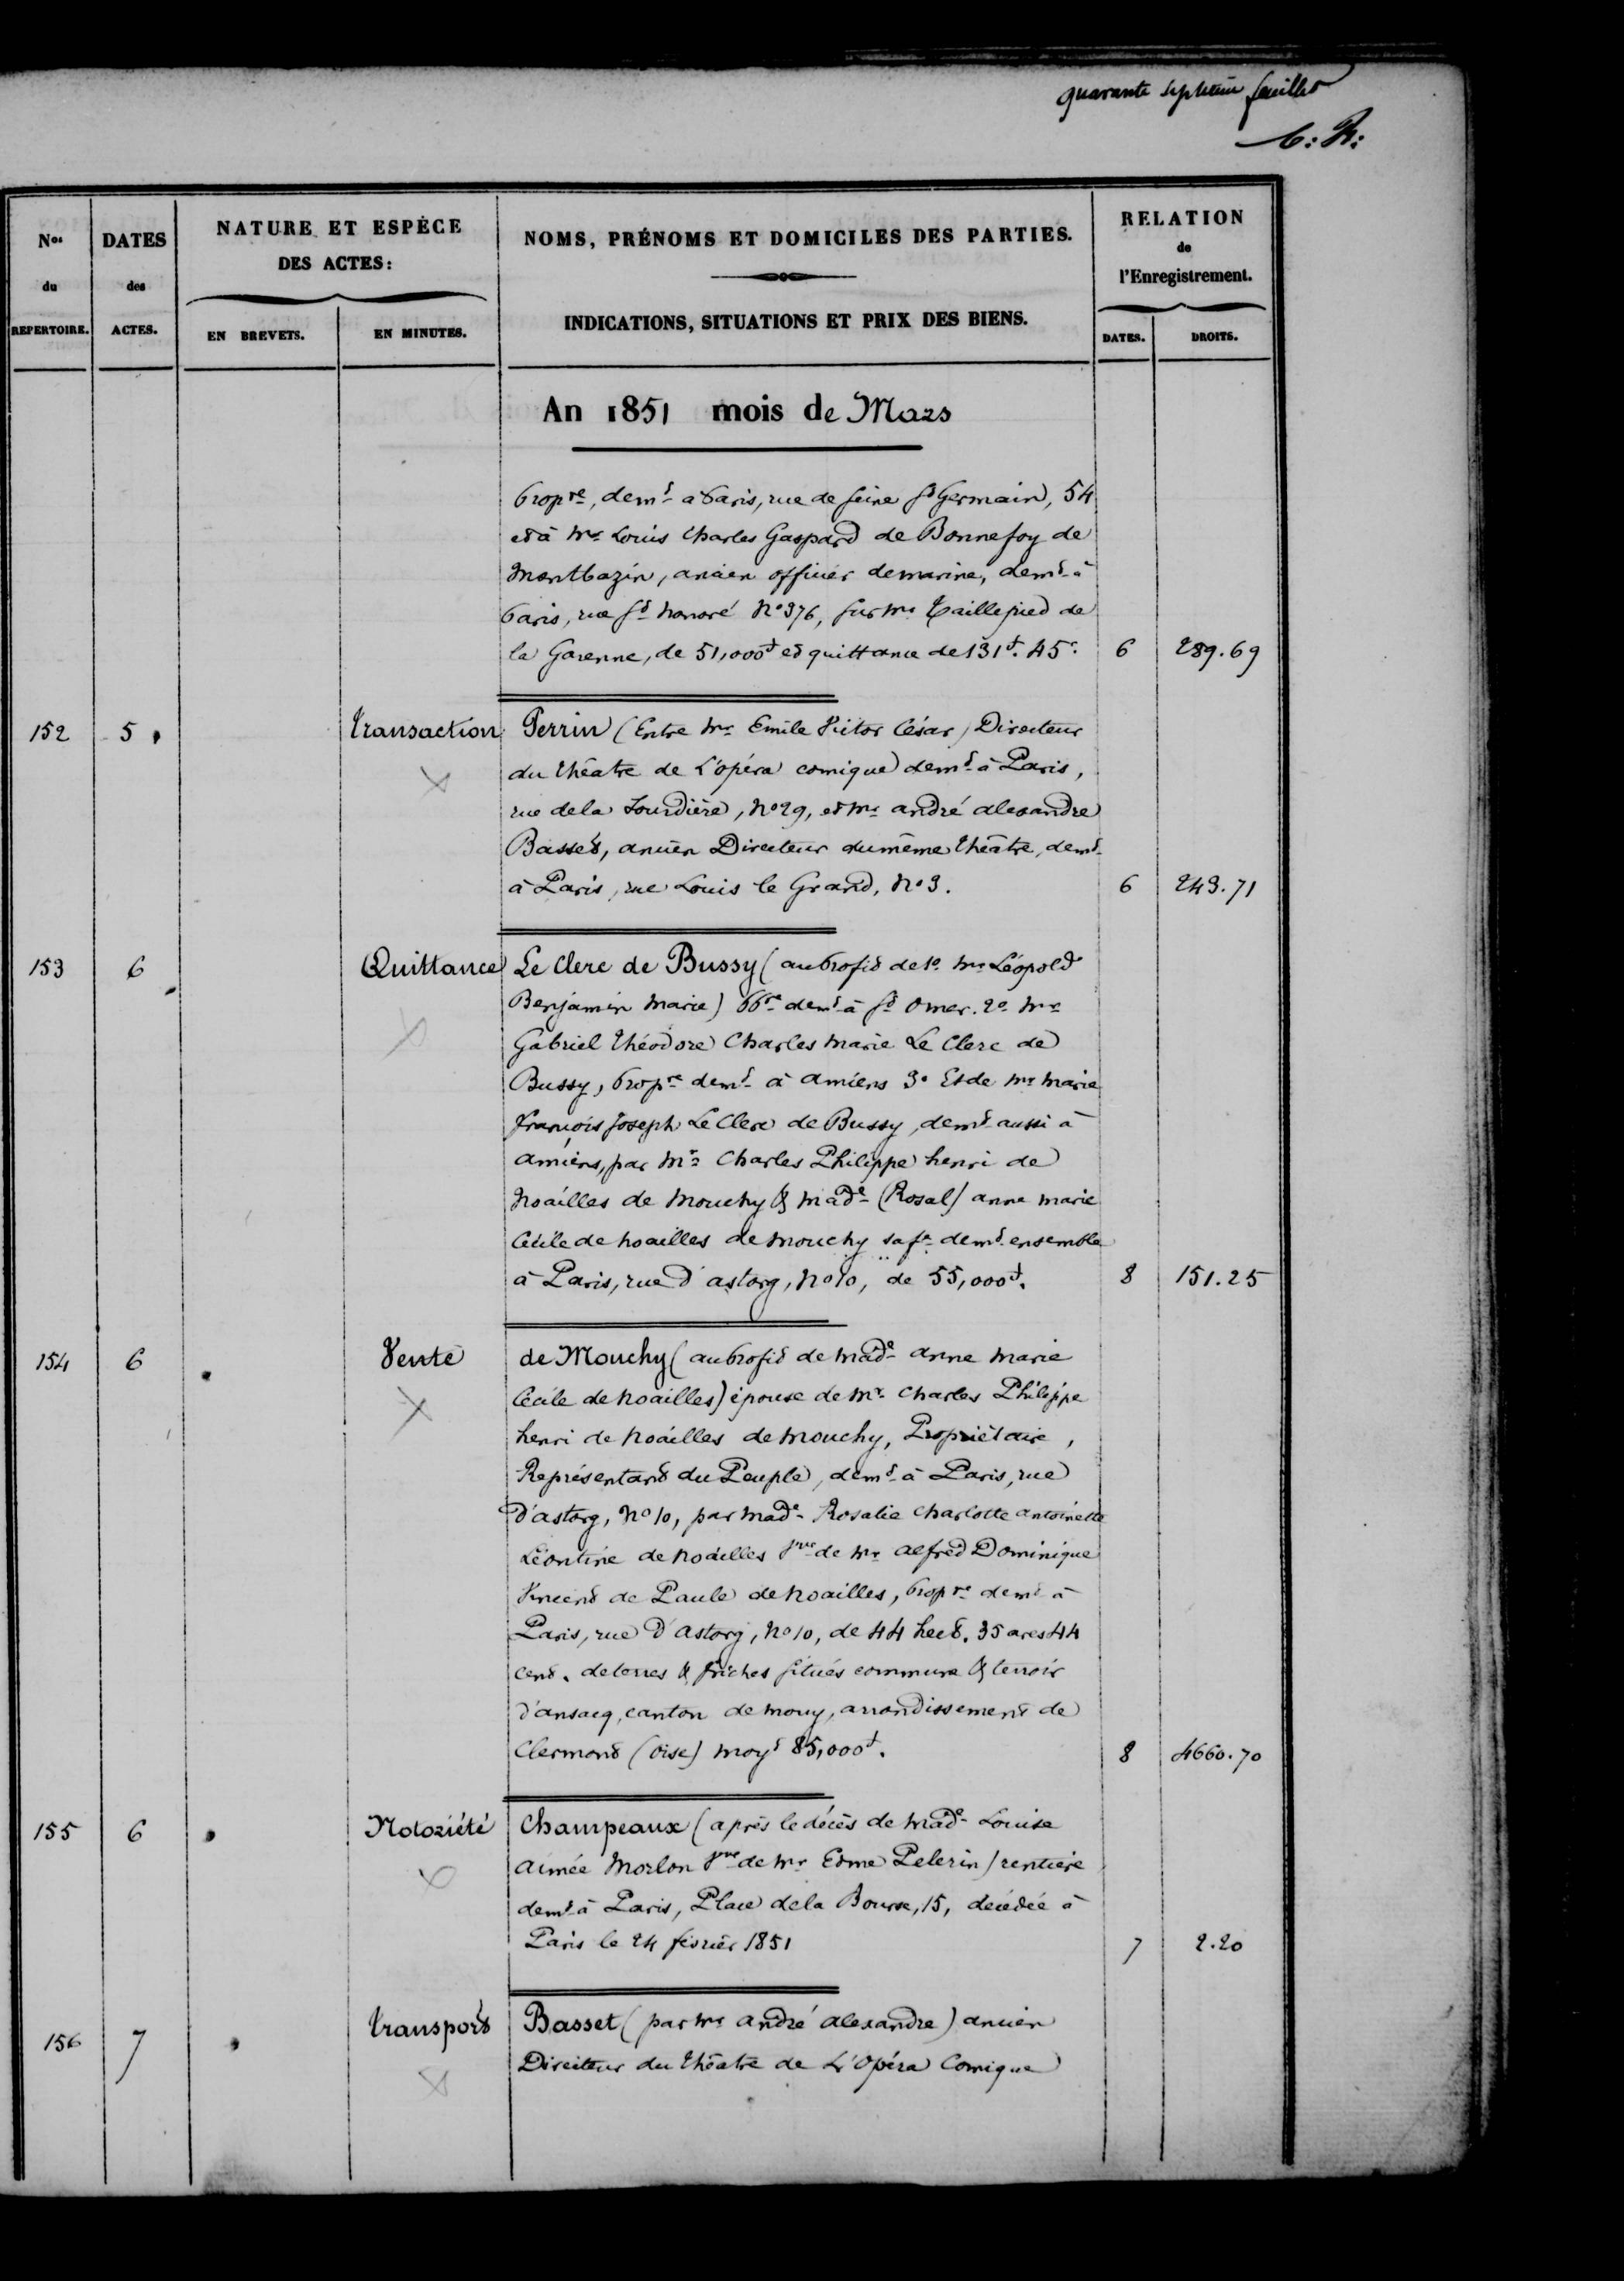 quarante septième feuillet
C: R:
Nos du REPERTOIRE.
DATES des ACTES.
NATURE ET ESPÈCE DES ACTES:
EN BREVETS.
EN MINUTES.
NOMS, PRÉNOMS ET DOMICILES DES PARTIES.
INDICATIONS, SITUATIONS ET PRIX DES BIENS.
RELATION de l'Enregistrement.
DATES.
DROITS.
An 1851 mois de Mars
Propre, demt à Paris, rue de Seine St Germain, 54
et à Mr Louis Charles Gaspard de Bonnefoy de
Montbazin, ancien officier de marine, demt à
Paris, rue St honoré No 376, sur Mr Taillepied de
la Garenne, de 51,000f et quittance de 131f. 45c. 6 289.69
152 5 Transaction Perrin (Entre Mr Emile Victor César) Directeur
du théatre de L'opéra comique demt à Paris,
rue de la Sourdière, No 29, et Mr andré alexandre
Basset, ancien Directeur du même théâtre, demt
à Paris, rue Louis le Grand, No 3. 6 243.71
153 6 Quittance Le Clerc de Bussy (au Profit de 1o Mr Léopold
Benjamin Marie) Ppre demt à St Omer. 2o Mr
Gabriel théodore Charles Marie Le Clerc de
Bussy, Propre demt à amiens 3o Et de Mr Marie
françois Joseph Le Clerc de Bussy, demt aussi à
amiens, par Mr Charles Philippe henri de
Noailles de Mouchy & Made (Rosal) anne marie
Cécile de Noailles de Mouchy sa fe demt ensemble
à Paris, rue d'astorg, No 10, de 55,000f. 8 151.25
154 6 Vente de Mouchy (au Profit de Made anne Marie
Cécile de Noailles) épouse de Mr Charles Philippe
henri de Noailles de Mouchy, Propriétaire,
Représentant du Peuple, demt à Paris, rue
d'astorg, No 10, par Made Rosalie Charlotte antoinette
Léontine de Noailles Vve de Mr alfred Dominique
Vincent de Paule de Noailles, Propre demt à
Paris, rue d'astorg, No 10, de 44 hect. 35 ares 44
cent. de terres & friches situés commune & terroir
d'ansacq, canton de Mouy, arrondissement de
Clermont (Oise) moyt 85,000f. 8 4660.70
155 6 Notoriété Champeaux (après le décès de Made Louise
aimée Morlon Vve de Mr Edme Pelerin) rentière
demt à Paris, Place de la Bourse, 15, décédée à
Paris le 24 février 1851 7 2.20
156 7 Transport Basset (par Mr andré alexandre) ancien
Directeur du théatre de L'Opéra Comique